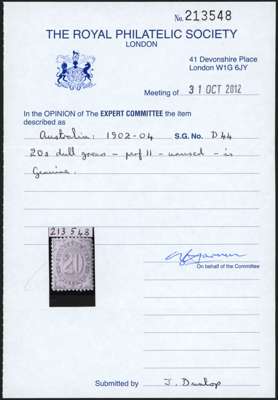 No. 213548
THE ROYAL PHILATELIC SOCIETY
LONDON
41 Devonshire Place
London W1G 6JY
Meeting of 31 OCT 2012
In the OPINION of The EXPERT COMMITTEE the item
described as
Australia: 1902-04 S.G. No. D44
20s dull green - perf 11 - unused - is
Genuine.
213548
20
On behalf of the Committee
Submitted by J. Dunlop